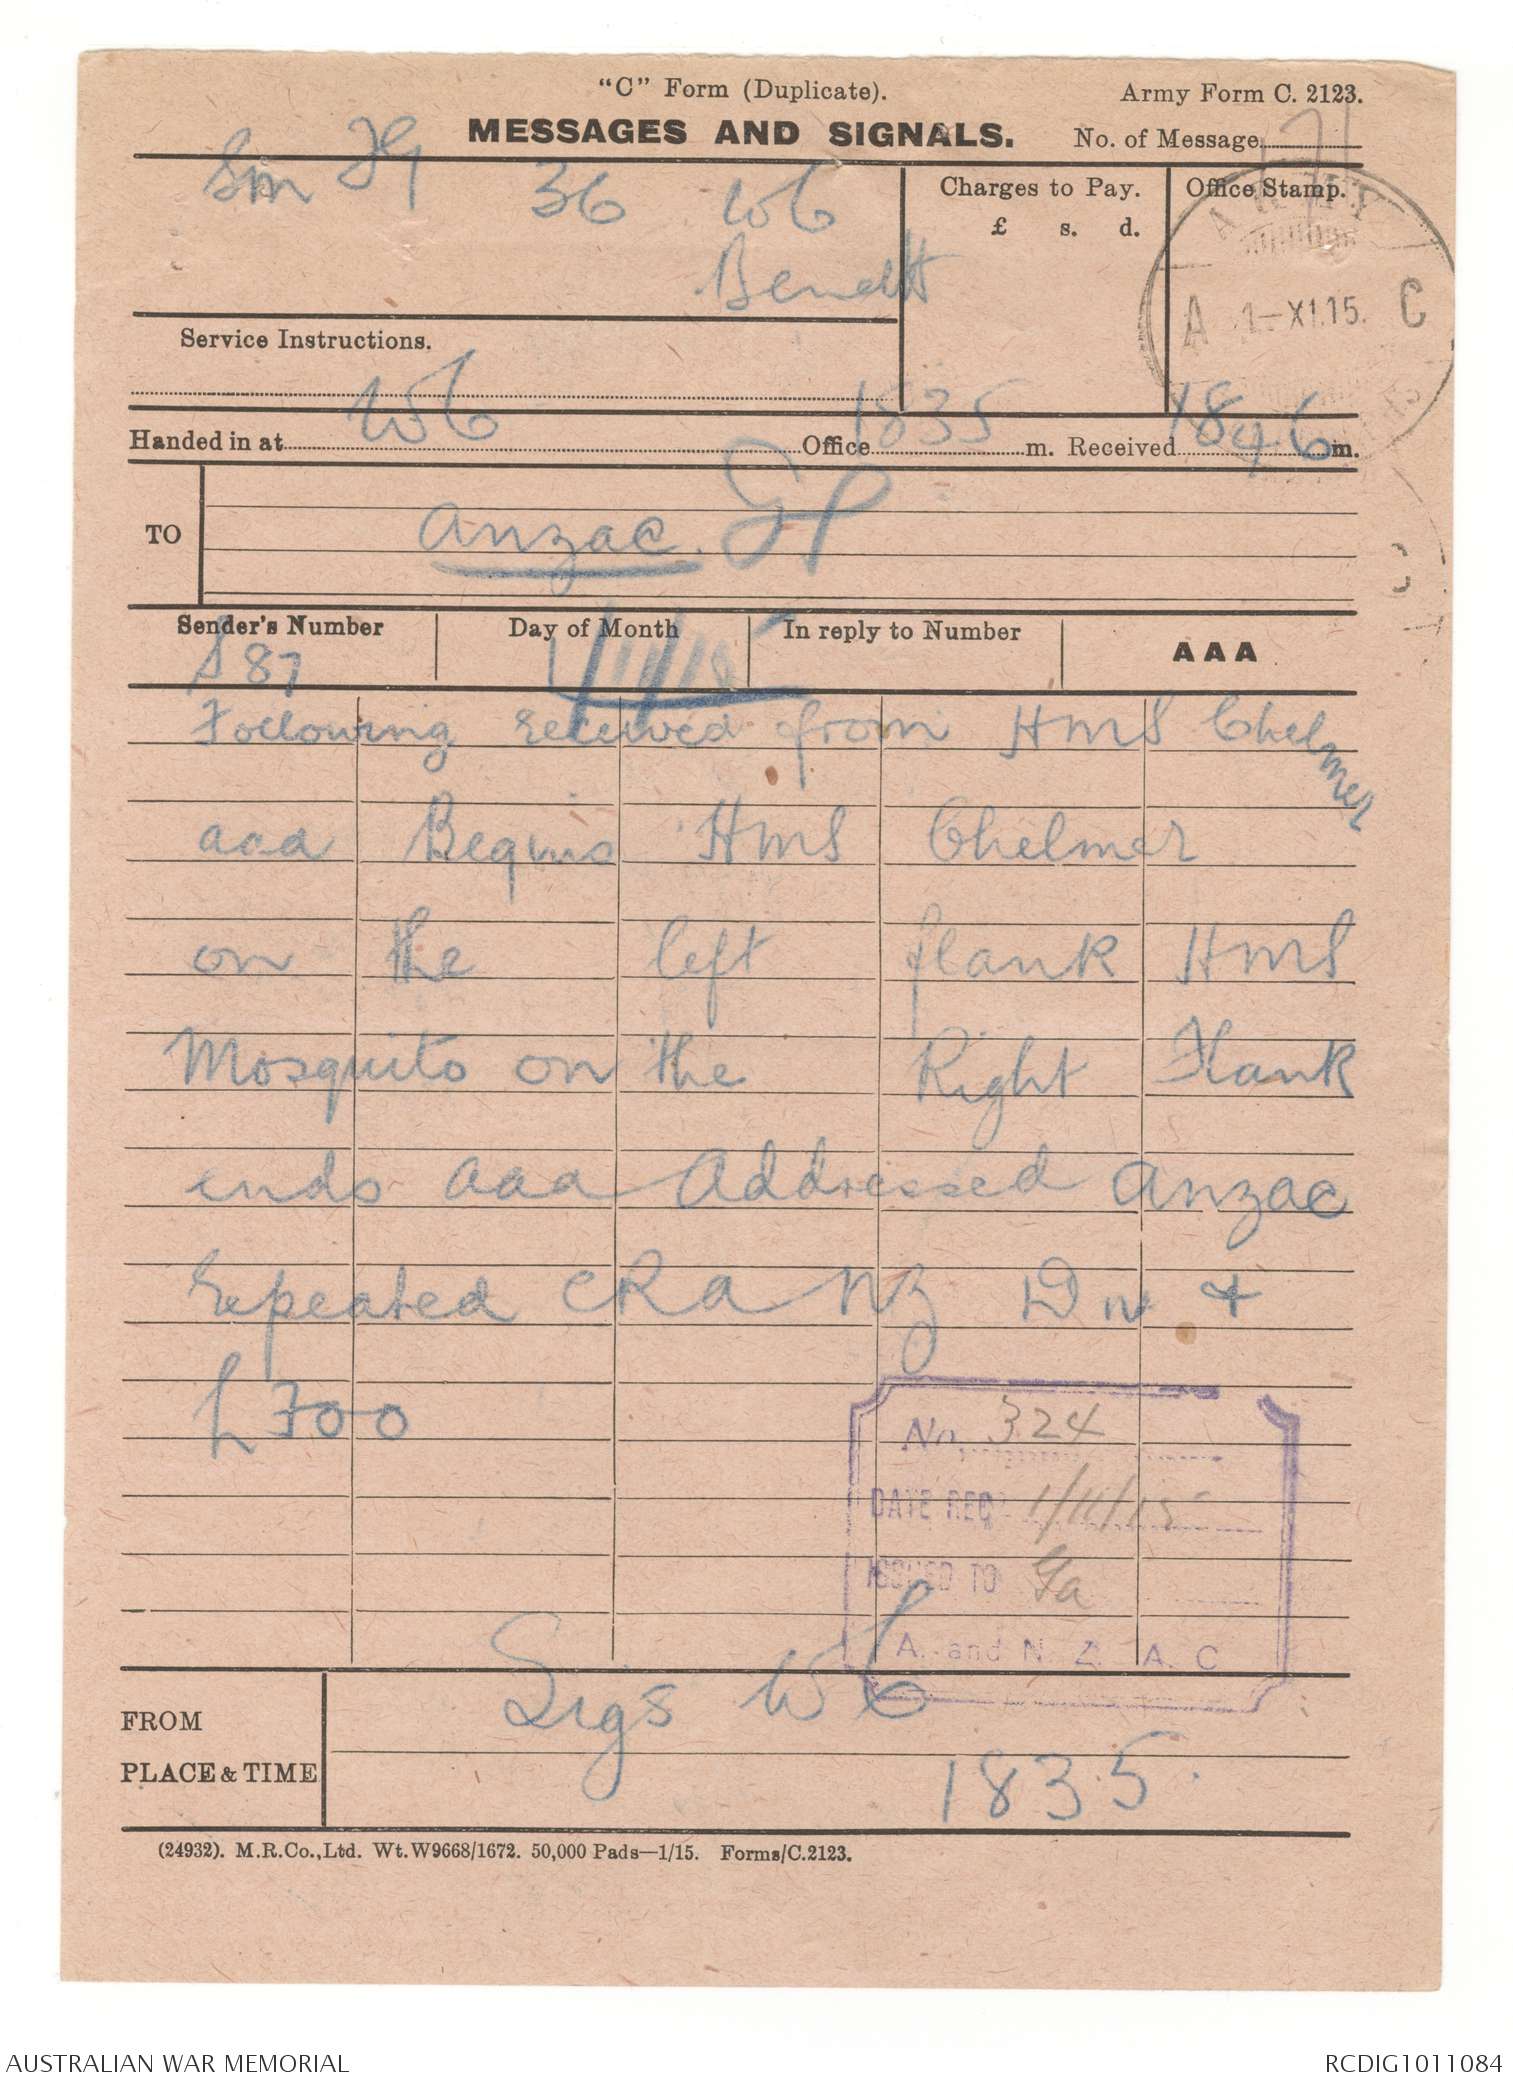 "C" Form (Duplicate). Army Form C. 2123.
MESSAGES AND SIGNALS. No. of Message
Sm 36 WC
Charges to Pay. Office Stamp.
£ s. d.
ARMY
A 1-XI.15. C
Service Instructions.
Handed in at WC Office 1835 m. Received 1846 m.
TO Anzac.
Sender's Number Day of Month In reply to Number AAA
S 87
Following received from HMS Chelmer
aaa Begins HMS Chelmer
on the left flank HMS
Mosquito on the Right Flank
ends aaa Addressed Anzac
repeated CRA NZ Dn &
No. 324
DATE REC 1/11/15
ISSUED TO Ga
A. and N. Z. A. C
FROM Sigs WC
PLACE & TIME 1835.
(24932). M.R.Co.,Ltd. Wt. W9668/1672. 50,000 Pads—1/15. Forms/C.2123.
AUSTRALIAN WAR MEMORIAL RCDIG1011084